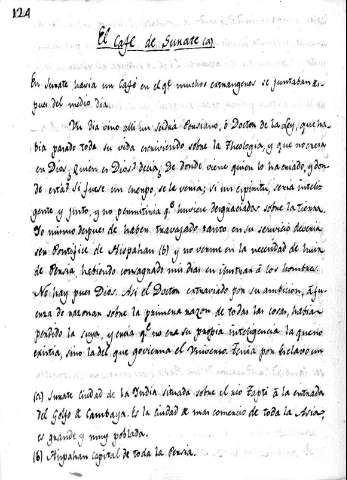 124
El Café de Surate (a)
En Surate havia un Café en el qe. muchos extrangeros se juntaban des-
pues del medio dia.
Un dia vino alli un Seidra Persiano, ô Doctor de la Ley, que ha-
bia pasado toda su vida escriviendo sobre la Theologia, y que no creia
en Dios. Quien es Dios? decia; De donde viene quien lo ha criado, y don-
de está? Si fuese un cuerpo, se le veria; si un espiritu, seria inteli-
gente y justo, y no permitiria qe. huviese desgraciados sobre la Tierra.
Yo mismo despues de haber travajado tanto en su servicio deberia
ser Pontifice de Hispahan (b) y no verme en la necesidad de huir
de Persia, habiendo consagrado mis dias en ilustrar â los hombres.
No hay pues Dios. Asi el Doctor extraviado por su ambicion, â fu-
erza de razonar sobre la primera razon de todas las cosas, habia
perdido la suya, y creia qe. no era su propia inteligencia la que no
existia, sino la del que govierna el Universo. Tenia por Esclavo un
(a) Surate ciudad de la India situada sobre el rio Tapti â la entrada
del Golfo de Cambaya. Es la Ciudad de mas comercio de toda la Asia,
es grande y muy poblada.
(b) Hispahan capital de toda la Persia.